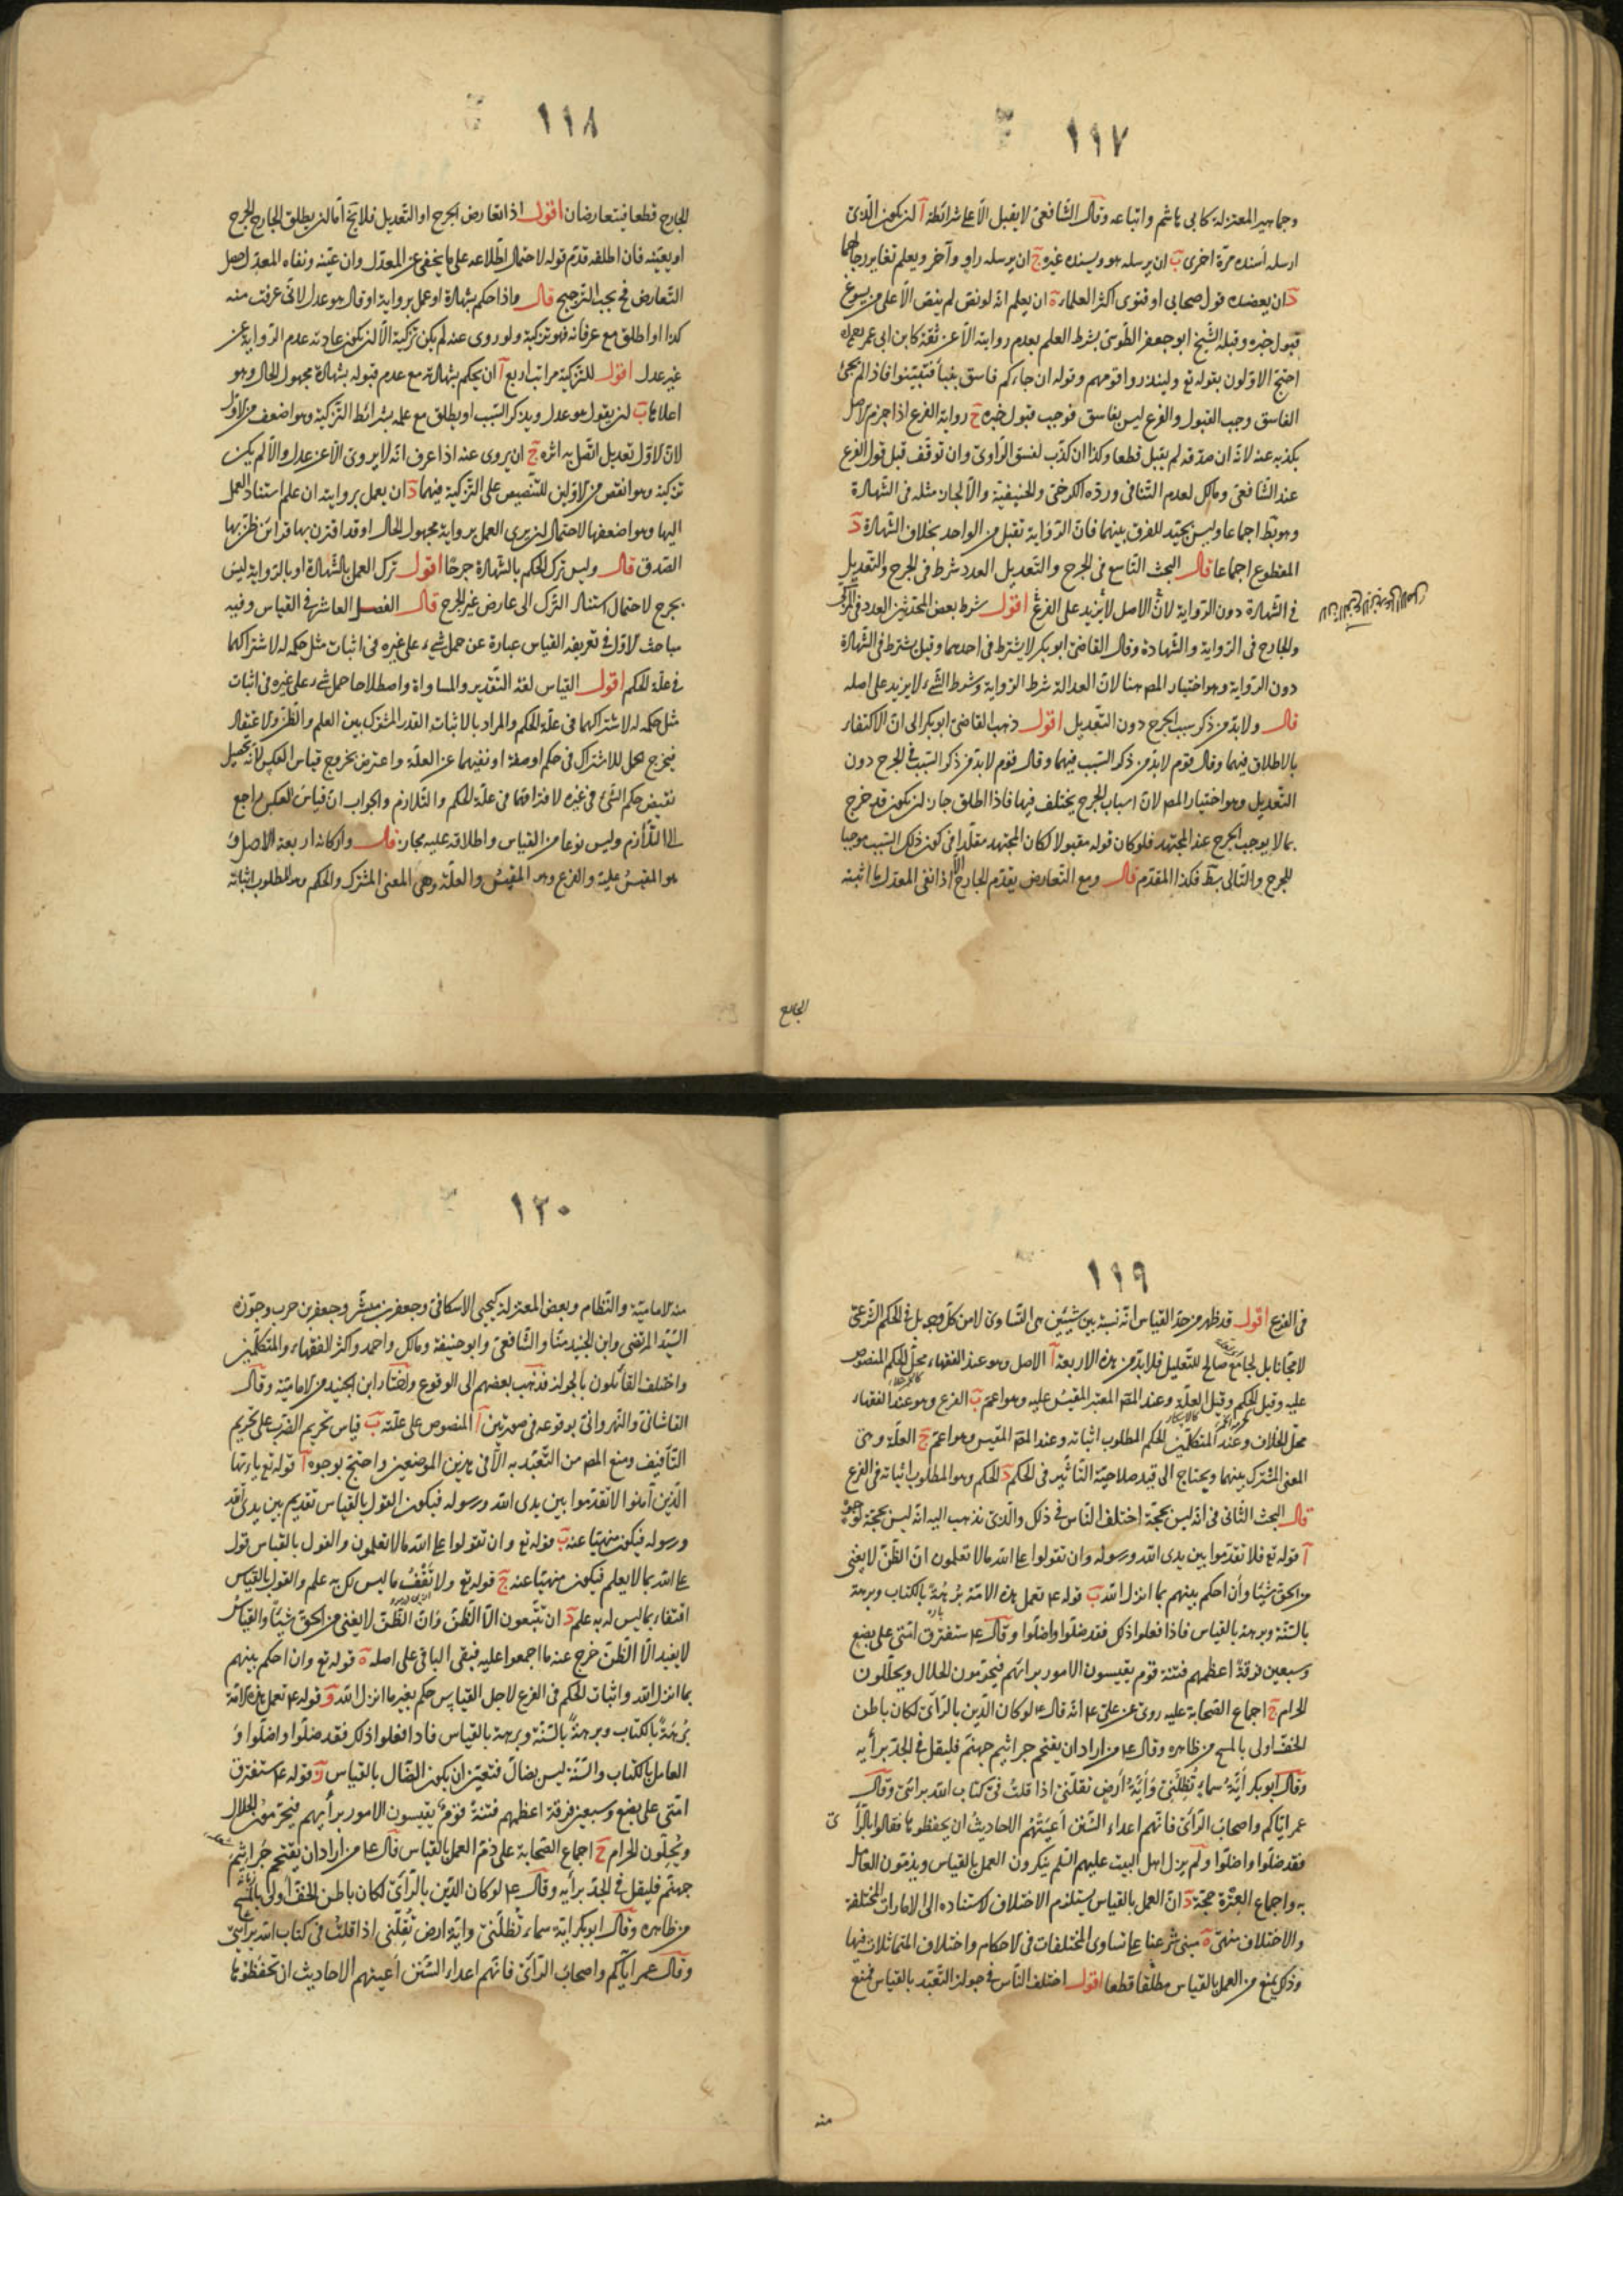 ١١٧
وجماهير المعتزلة كابى هاشم واتباعه وقال الشّافعىّ لا يقبل الّا على شرائط آ ان يكون الّذى
ارسله أسنده مرّة اخرى بَ ان يرسله هو ويسنده غيره جَ ان يرسله راوٍ وآخر ويعلم تغاير رجالهما
دَ ان يعضده قول صحابى او فتوى اكثر العلماء هَ ان يعلم انّه لو نصّ لم ينصّ الّا على من يسوغ
قبول خبره وقبله الشّيخ ابو جعفر الطّوسىّ بشرط العلم بعدم روايته الّا عن ثقة كابن ابى عمير
احتجّ الاوّلون بقوله تع ولينذروا قومهم وقوله ان جاءكم فاسق بنبأ فتبيّنوا فاذا لم يجئ
الفاسق وجب القبول والفرع ليس بفاسق فوجب قبول خبره جَ رواية الفرع اذا جزم الاصل
بكذبه عنه لانّه ان صدّقه لم يقبل قطعا وكذا ان كذّب لفسق الرّاوى وان توقّف قبل قول الفرع
عند الشّافعىّ ومالك لعدم التّنافى وردّه الكرخىّ والحنيفيّة والّا لجاز مثله فى الشّهادة
وهو بط اجماعا وليس بجيّد للفرق بينهما فانّ الرّواية تقبل من الواحد بخلاف الشّهادة دَ
المقطوع اجماعا قال البحث التّاسع فى الجرح والتّعديل العدد شرط فى الجرح والتّعديل
فى الشّهادة دون الرّواية لانّ الاصل لا يزيد على الفرع اقول شرط بعض المحدّثين العدد فى المزكّى
والجارح فى الرّواية والشّهادة وقال القاضى ابو بكر لا يشترط فى احدهما وقيل يشترط فى الشّهادة
دون الرّواية وهو اختيار المص هنا لانّ العدالة شرط الرّواية وشرط الشّىء لا يزيد على اصله
قال ولا بدّ من ذكر سبب الجرح دون التّعديل اقول ذهب القاضى ابو بكر الى انّ الاكتفاء
بالاطلاق فيهما وقال قوم لا بدّ من ذكر السّبب فيهما وقال قوم لا بدّ من ذكر السّبب فى الجرح دون
التّعديل وهو اختيار المص لانّ اسباب الجرح يختلف فيها فاذا اطلق جاز ان يكون قد خرج
بما لا يوجب الجرح عند المجتهد فلو كان قوله مقبولا لكان المجتهد مقلّدا فى كون ذلك السّبب موجبا
للجرح والتّالى بط فكذا المقدّم قال ومع التّعارض يقدّم الجارح الّا اذا نفى المعدّل ما اثبته
الجارح
١١٨
الجارح قطعا فيتعارضان اقول اذا تعارض الجرح او التّعديل فلا يخ امّا ان يطلق الجارح الجرح
او يعيّنه فان اطلقه قدّم قوله لاحتمال اطّلاعه على ما يخفى عن المعدّل وان عيّنه ونفاه المعدّل حصل
التّعارض فح يجب التّرجيح قال واذا حكم بشهادة او عمل بروايته او قال هو عدل لانّى عرفت منه
كذا او اطلق مع عرفانه فهو تزكية ولو روى عنه لم يكن تزكية الّا ان يكون عادته عدم الرّواية عن
غير عدل اقول للتّزكية مراتب اربع آ ان يحكم بشهادته مع عدم قبوله بشهادة مجهول الحال وهو
اعلاها بَ ان يقول هو عدل ويذكر السّبب او يطلق مع علمه بشرائط التّزكية وهو اضعف من الاوّل
لانّ الاوّل تعديل اتّصل به اثره جَ ان يروى عنه اذا عرف انّه لا يروى الّا عن عدل والّا لم يكن
تزكية وهو انقص من الاوّلين للتّنصيص على التّزكية فيهما دَ ان يعمل بروايته ان علم استناد العمل
اليها وهو اضعفها لاحتمال ان يرى العمل برواية مجهول الحال او قد اقترن بها قرائن ظنّ بها
الصّدق قال وليس ترك الحكم بالشّهادة جرحًا اقول ترك العمل بالشّهادة او بالرّواية ليس
بجرح لاحتمال استناد التّرك الى عارض غير الجرح قال الفصل العاشر فى القياس وفيه
مباحث الاوّل فى تعريفه القياس عبارة عن حمل شىء على غيره فى اثبات مثل حكمه له لاشتراكهما
فى علّة الحكم اقول القياس لغة التّقدير والمساواة واصطلاحا حمل شىء على غيره فى اثبات
مثل حكمه له لاشتراكهما فى علّة الحكم والمراد بالاثبات القدر المشترك بين العلم والظّنّ والاعتقاد
فيخرج الحمل للاشتراك فى حكم او صفة او نفيهما عن العلّة واعترض بخروج قياس العكس لانّه تحصيل
نقيض حكم الشّىء فى غيره لافتراقهما فى علّة الحكم والتّلازم والجواب انّ قياس العكس راجع
الى التّلازم وليس نوعا من القياس واطلاقه عليه مجاز قال واركانه اربعة الاصل و
هو المقيس عليه والفرع وهو المقيس والعلّة وهى المعنى المشترك والحكم وهو المطلوب اثباته
١١٩
فى الفرع اقول قد ظهر من حدّ القياس انّه نسبة بين شيئين هى التّساوى لا من كلّ وجه بل فى الحكم الشّرعىّ
لا مجّانا بل لجامع صالح للتّعليل فلا بدّ من هذه الاربعة آ الاصل وهو عند الفقهاء محلّ الحكم المنصوص
عليه وقيل الحكم وقيل العلّة وعند المص المعتبر المقيس عليه وهو اعمّ بَ الفرع وهو عند الفقهاء
محلّ الخلاف وعند المتكلّمين الحكم المطلوب اثباته وعند المص المقيس وهو اعمّ جَ العلّة وهى
المعنى المشترك بينهما ويحتاج الى قيد صلاحيّة التّأثير فى الحكم دَ الحكم وهو المطلوب اثباته فى الفرع
قال البحث الثّانى فى انّه ليس بحجّة اختلف النّاس فى ذلك والّذى نذهب اليه انّه ليس بحجّة لوجوه
آ قوله تع فلا تقدّموا بين يدى الله ورسوله وان تقولوا على الله ما لا تعلمون انّ الظّنّ لا يغنى
من الحقّ شيئا وأن احكم بينهم بما انزل الله بَ قوله ع تعمل هذه الامّة بُرهَةً بالكتاب وبرهة
بالسّنّة وبرهة بالقياس فاذا فعلوا ذلك فقد ضلّوا واضلّوا وقال ع ستفترق امّتى على بضع
وسبعين فرقةً اعظمهم فتنة قوم يقيسون الامور برائهم فيحرّمون الحلال ويحلّلون
الحرام جَ اجماع الصّحابة عليه روى عن علىّ ع انّه قال ع لو كان الدّين بالرّأى لكان باطن
الخفّ اولى بالمسح من ظاهره وقال ع من اراد ان يقتحم جراثيم جهنّم فليقل فى الجدّ برأيه
وقال ابو بكر أيّة سماءٍ تُظِلّنى وَأيّةُ أرضٍ تقلّنى اذا قلتُ فى كتاب الله برائى وقال
عمر ايّاكم واصحابَ الرّأى فانّهم اعداء السُّنَنِ أعيَتْهُمُ الاحاديثُ ان يحفظوها فقالوا بالرّأى
فقد ضلّوا واضلّوا ولم يزل اهل البيت عليهم السّلم ينكرون العمل بالقياس ويذمّون العامل
به واجماع العِتْرَة حجّة دَ انّ العمل بالقياس يستلزم الاختلاف لاستناده الى الامارات المختلفة
والاختلاف منهىّ هَ مبنى شرعنا على تساوى المختلفات فى الاحكام واختلاف المتماثلات فيها
وذلك يمنع من العمل بالقياس مطلقا قطعا اقول اختلف النّاس فى جواز التّعبّد بالقياس فمنع
منه
١٢٠
منه الاماميّة والنّظام وبعض المعتزلة كيحيى الاسكافىّ وجعفر بن مبشّر وجعفر بن حرب وجوّزه
السّيّد المرتضى وابن الجنيد منّا والشّافعىّ وابو حنيفة ومالك واحمد واكثر الفقهاء والمتكلّمين
واختلف القائلون بالجواز فذهب بعضهم الى الوقوع واختاره ابن الجنيد من الاماميّة وقال
القاشانىّ والنّهروانىّ بوقوعه فى صورتين آ المنصوص على علّته بَ قياس تحريم الضّرب على تحريم
التّأفيف ومنع المص من التّعبّد به الّا فى هذين الموضعين واحتجّ بوجوه آ قوله تع يا ايّها
الّذين آمنوا لا تقدّموا بين يدى الله ورسوله فيكون القول بالقياس تقديم بين يدى الله
ورسوله فيكون منهيّا عنه بَ قوله تع وان تقولوا على الله ما لا تعلمون والقول بالقياس قول
على الله بما لا يعلم فيكون منهيّا عنه جَ قوله تع ولا تَقْفُ ما ليس لك به علم والقول بالقياس
اقتفاء بما ليس له به علم دَ ان يتّبعون الّا الظّنّ وَانّ الظّنّ لا يغنى من الحقّ شيئا والقياس
لا يفيد الّا الظّنّ خرج عنه ما اجمعوا عليه فبقى الباقى على اصله هَ قوله تع وان احكم بينهم
بما انزل الله واثبات الحكم فى الفرع لاجل القياس حكم بغير ما انزل الله وَ قوله ع تعمل هذه الامّة
بُرهَةً بالكتاب وبرهةً بالسّنّة وبرهة بالقياس فاذا فعلوا ذلك فقد ضلّوا واضلّوا و
العامل بالكتاب والسّنّة ليس بضالّ فتعيّن ان يكون الضّالّ بالقياس زَ قوله ع ستفترق
امّتى على بضع وسبعين فرقة اعظمهم فتنةً قومٌ يقيسون الامور برأيهم فيحرّمون الحلال
ويُحِلّون الحرام حَ اجماع الصّحابة على ذمّ العمل بالقياس قال ع من اراد ان يقتحم جُراثيم
جهنّم فليقل فى الجدّ برأيه وقال ع لو كان الدّين بالرّأى لكان باطن الخفّ اولى بالمسح
من ظاهره وقال ابو بكر ايّة سماء تُظلّنى وايّة ارض تُقِلّنى اذا قلتُ فى كتاب الله برائى
وقال عمر ايّاكم واصحابَ الرّأى فانّهم اعداء السُّنَنِ أعيتهم الاحاديث ان تحفظوها